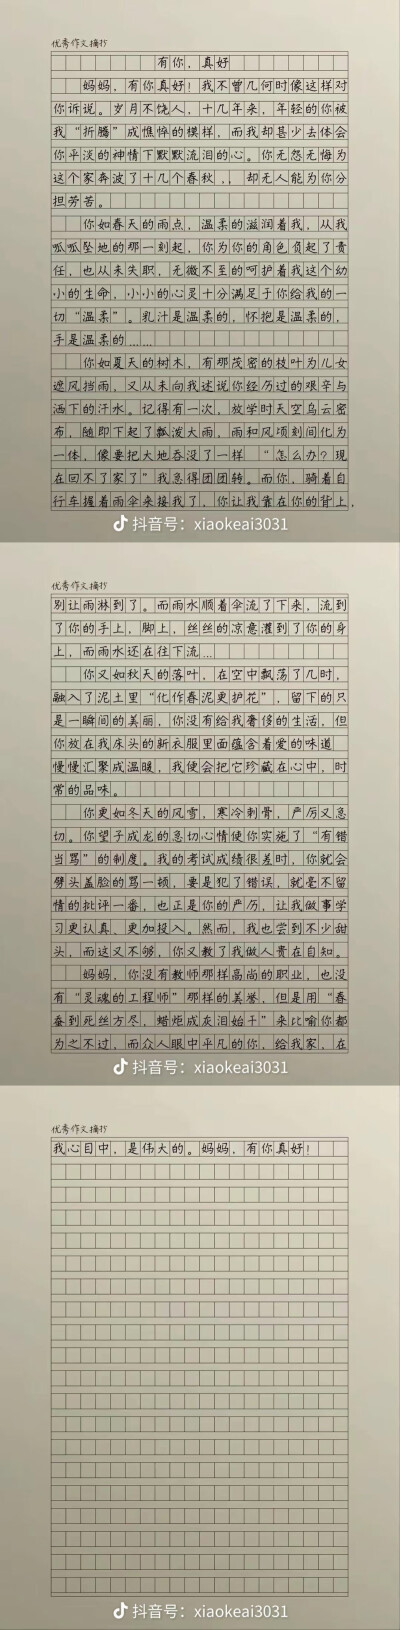 优秀作文摘抄
有你，真好
妈妈，有你真好！我不曾几何时像这样对
你诉说。岁月不饶人，十几年来，年轻的你被
我“折腾”成憔悴的模样，而我却甚少去体会
你平淡的神情下默默流泪的心。你无怨无悔为
这个家奔波了十几个春秋，，却无人能为你分
担劳苦。
你如春天的雨点，温柔的滋润着我，从我
呱呱坠地的那一刻起，你为你的角色负起了责
任，也从未失职，无微不至的呵护着我这个幼
小的生命，小小的心灵十分满足于你给我的一
切“温柔”。乳汁是温柔的，怀抱是温柔的，
手是温柔的……
你如夏天的树木，有那茂密的枝叶为儿女
遮风挡雨，又从未向我述说你经历过的艰辛与
洒下的汗水。记得有一次，放学时天空乌云密
布，随即下起了瓢泼大雨，雨和风顷刻间化为
一体，像要把大地吞没了一样 “怎么办？现
在回不了家了”我急得团团转。而你，骑着自
行车握着雨伞来接我了，你让我靠在你的背上，
抖音号：xiaokeai3031
优秀作文摘抄
别让雨淋到了。而雨水顺着伞流了下来，流到
了你的手上，脚上，丝丝的凉意灌到了你的身
上，而雨水还在往下流…
你又如秋天的落叶，在空中飘荡了几时，
融入了泥土里“化作春泥更护花”，留下的只
是一瞬间的美丽，你没有给我奢侈的生活，但
你放在我床头的新衣服里面蕴含着爱的味道
慢慢汇聚成温暖，我便会把它珍藏在心中，时
常的品味。
你更如冬天的风雪，寒冷刺骨，严厉又急
切。你望子成龙的急切心情使你实施了“有错
当骂”的制度。我的考试成绩很差时，你就会
劈头盖脸的骂一顿，要是犯了错误，就毫不留
情的批评一番，也正是你的严厉，让我做事学
习更认真、更加投入。然而，我也尝到不少甜
头，而这又不够，你又教了我做人贵在自知。
妈妈，你没有教师那样高尚的职业，也没
有“灵魂的工程师”那样的美誉，但是用“春
蚕到死丝方尽，蜡炬成灰泪始干”来比喻你都
为之不过，而众人眼中平凡的你，给我家，在
抖音号：xiaokeai3031
优秀作文摘抄
我心目中，是伟大的。妈妈，有你真好！
抖音号：xiaokeai3031